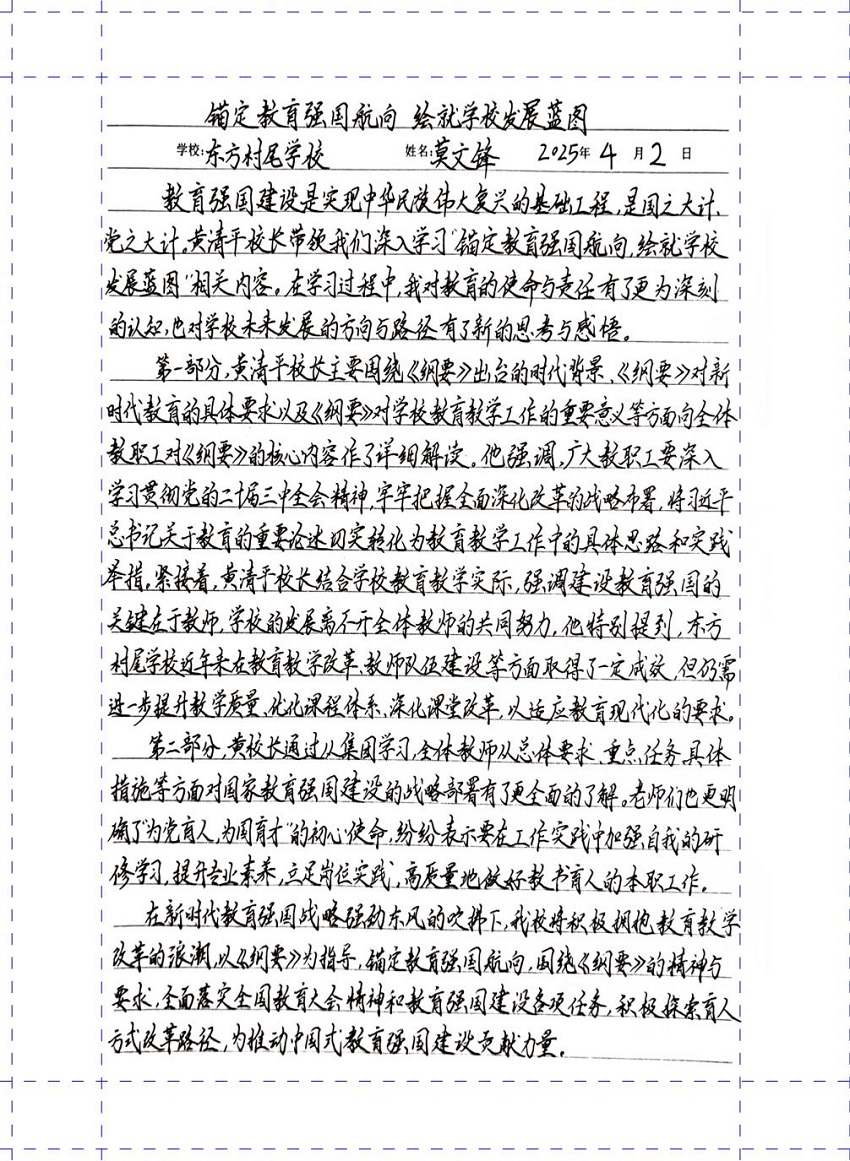 锚定教育强国航向 绘就学校发展蓝图
学校:东方村尾学校 姓名:莫文锋 2025年4月2日
教育强国建设是实现中华民族伟大复兴的基础工程,是国之大计、
党之大计。黄清平校长带领我们深入学习“锚定教育强国航向,绘就学校
发展蓝图”相关内容。在学习过程中,我对教育的使命与责任有了更为深刻
的认知,也对学校未来发展的方向与路径有了新的思考与感悟。
第一部分,黄清平校长主要围绕《纲要》出台的时代背景、《纲要》对新
时代教育的具体要求以及《纲要》对学校教育教学工作的重要意义等方面向全体
教职工对《纲要》的核心内容作了详细解读。他强调,广大教职工要深入
学习贯彻党的二十届三中全会精神,牢牢把握全面深化改革的战略布署,将习近平
总书记关于教育的重要论述切实转化为教育教学工作中的具体思路和实践
举措。紧接着,黄清平校长结合学校教育教学实际,强调建设教育强国的
关键在于教师,学校的发展离不开全体教师的共同努力。他特别提到,东方
村尾学校近年来在教育教学改革、教师队伍建设等方面取得了一定成效,但仍需
进一步提升教学质量、优化课程体系、深化课堂改革,以适应教育现代化的要求。
第二部分,黄校长通过以集团学习,全体教师从总体要求、重点任务、具体
措施等方面对国家教育强国建设的战略部署有了更全面的了解。老师们也更明
确了“为党育人,为国育才”的初心使命,纷纷表示要在工作实践中加强自我的研
修学习,提升专业素养,立足岗位实践,高质量地做好教书育人的本职工作。
在新时代教育强国战略强劲东风的吹拂下,我校将积极拥抱教育教学
改革的浪潮,以《纲要》为指导,锚定教育强国航向,围绕《纲要》的精神与
要求,全面落实全国教育大会精神和教育强国建设各项任务,积极探索育人
方式改革路径,为推动中国式教育强国建设贡献力量。